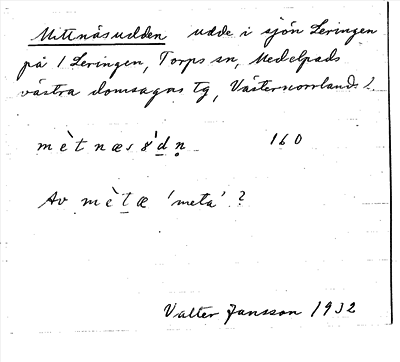 Mittnäsudden udde i sjön Leringen
på 1 Leringen, Torps sn, Medelpads
västra domsagas tg, Västernorrlands l.
mètnæs8'dn̥ 160
Av mètæ 'meta'?
Valter Jansson 1932